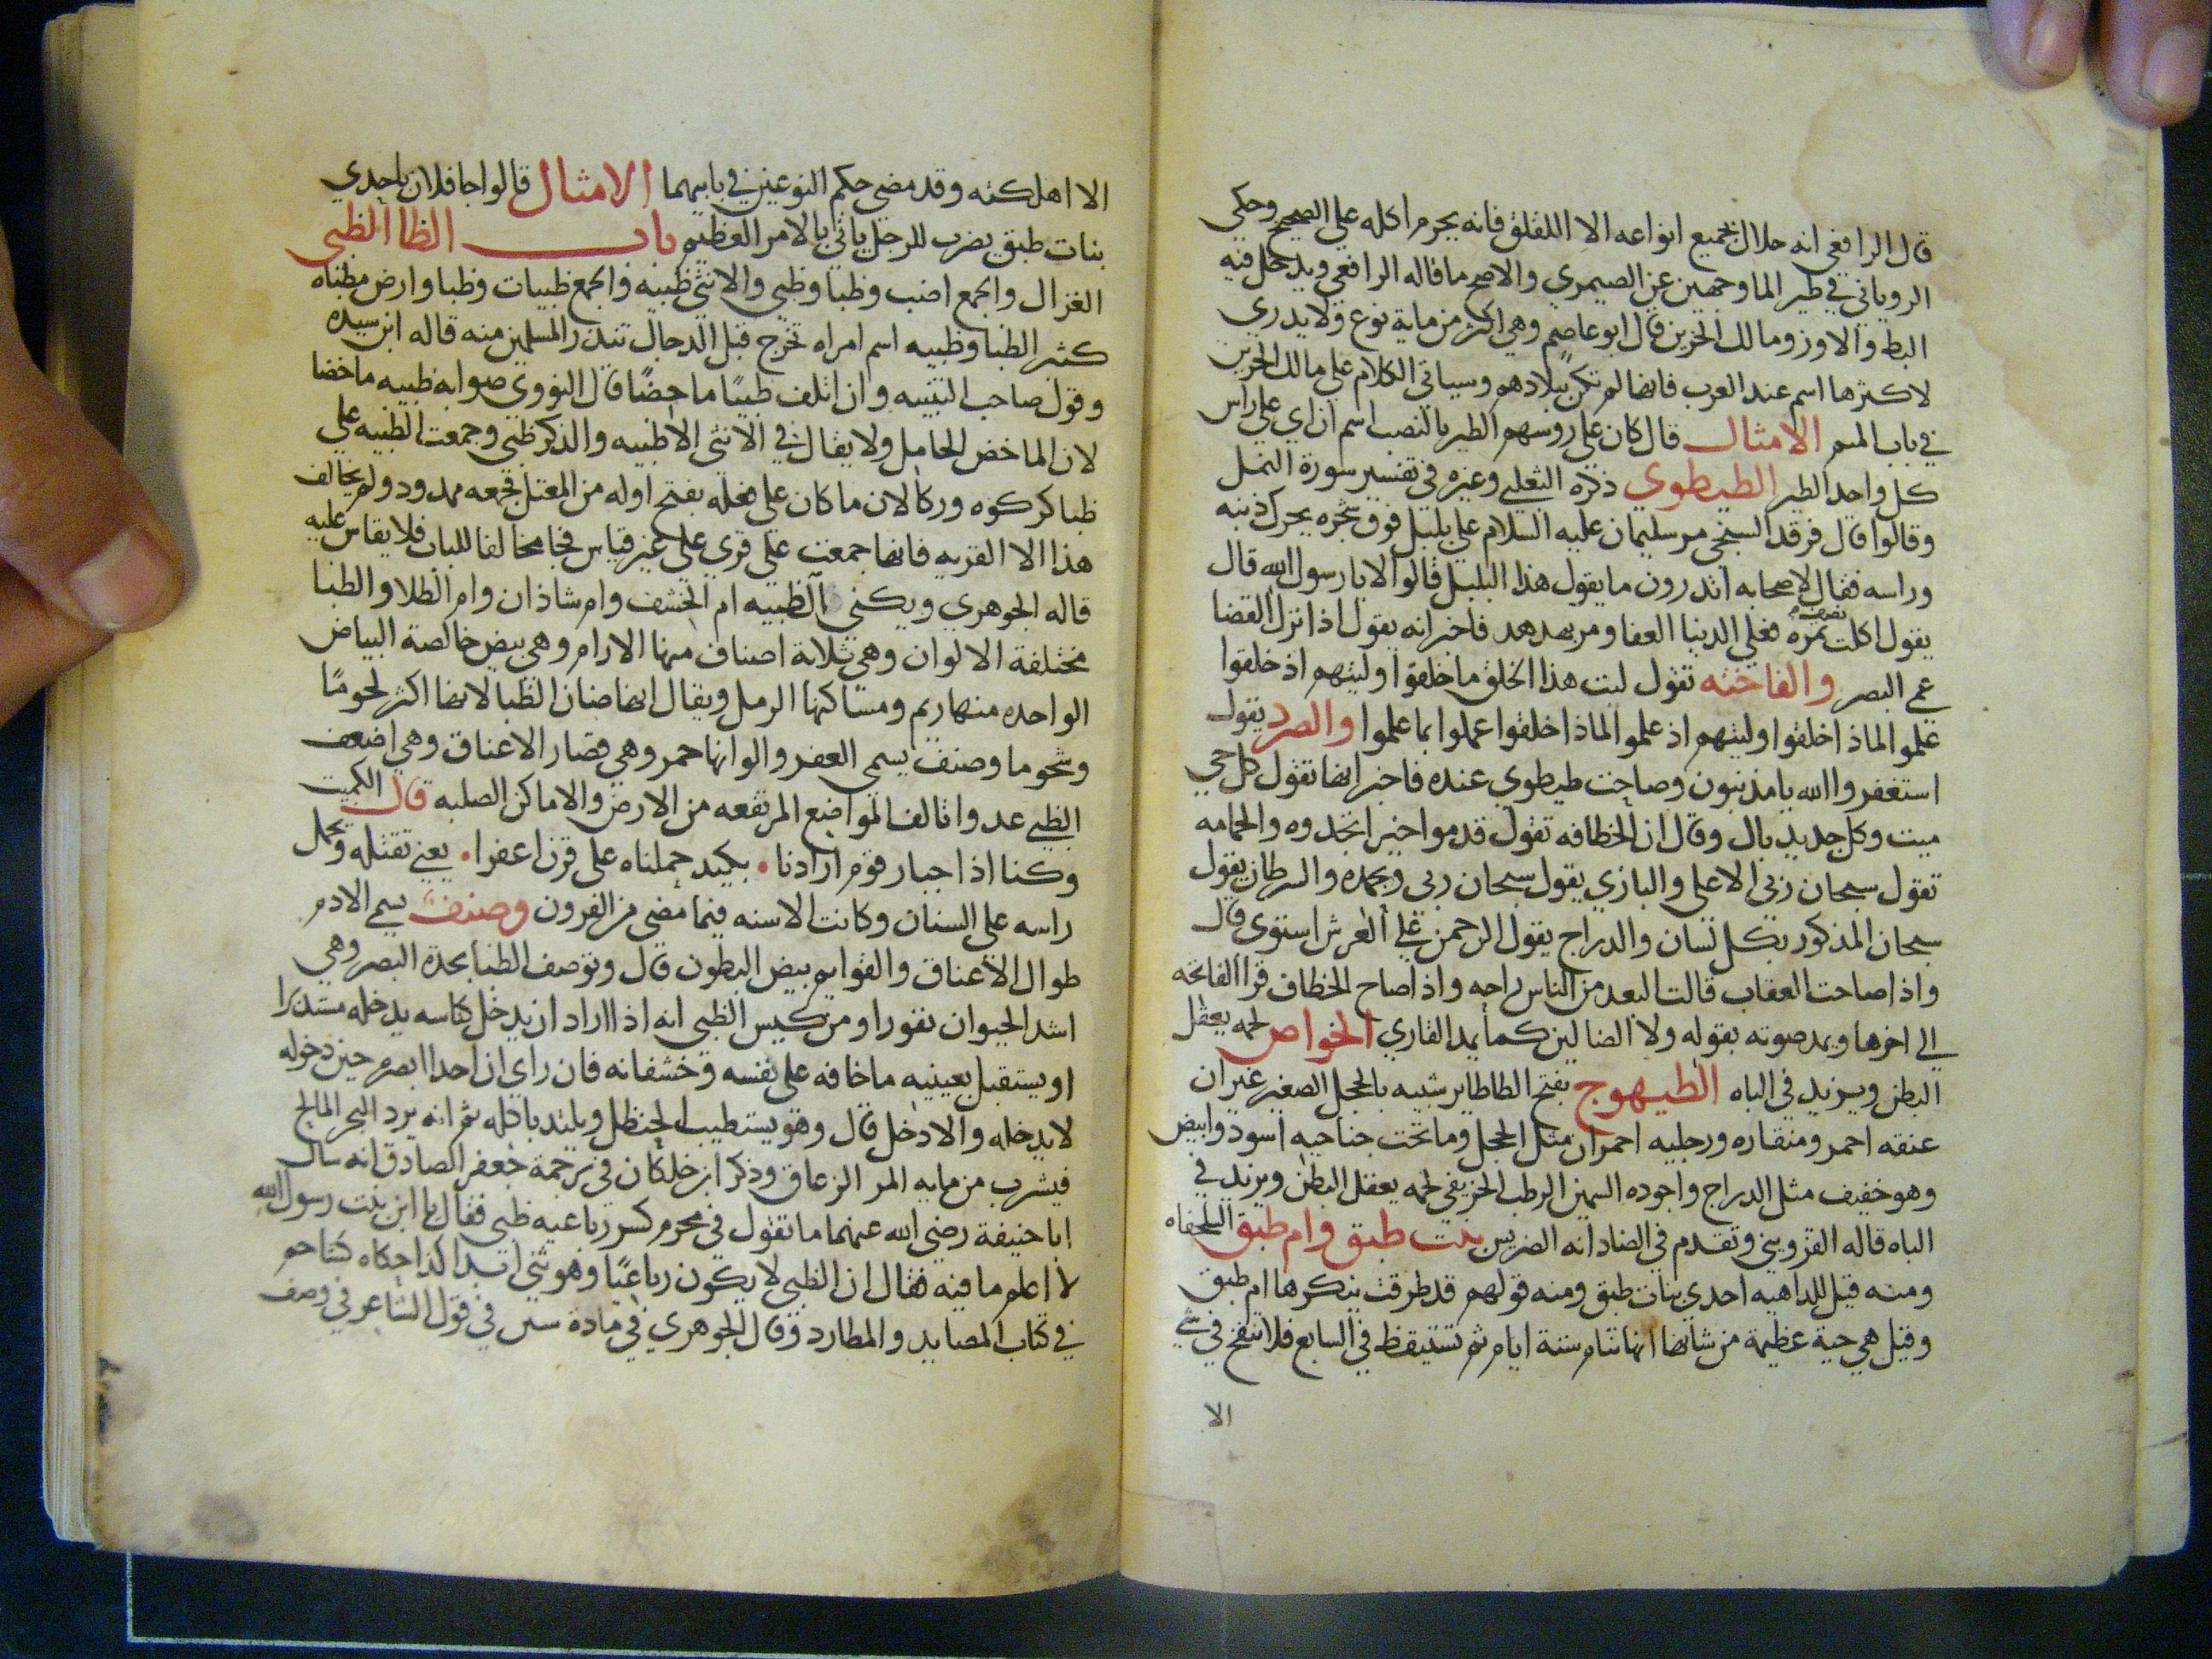 قال الرافعي انه حلال بجميع انواعه الا اللقلق فانه يحرم اكله على الصحيح وحكى
الروياني في طير الما وجهين عن الصيمري والاصح ما قاله الرافعي ويدخل فيه
البط والاوز ومالك الحزين قال ابو عاصم وهي اكثر من ماية نوع ولا يدرى
لاكثرها اسم عند العرب فانها لم تكن ببلادهم وسياتي الكلام على مالك الحزين
في باب الميم الامثال قال كان على روسهم الطير بالنصب اسم ان اي على راس
كل واحد الطير الطيطوي ذكره الثعلبي وغيره في تفسير سورة النمل
وقالوا قال فرقد السبخي مر سليمان عليه السلام على بلبل فوق شجره يحرك ذنبه
وراسه فقال لاصحابه اتدرون ما يقول هذا البلبل قالوا لا يا رسول الله قال
يقول اكلت نصف تمره فعلى الدنيا العفا ومر بهدهد فاخبر انه يقول اذا نزل القضا
عمي البصر والفاخته تقول ليت هذا الخلق ما خلقوا وليتهم اذ خلقوا
علموا لماذا خلقوا وليتهم اذ علموا لماذا خلقوا عملوا بما علموا والصرد يقول
استغفروا الله يا مذنبون وصاحت طيطوي عنده فاخبر انها تقول كل حي
ميت وكل جديد بال وقال ان الخطافه تقول قدموا خيرا تجدوه والحمامه
تقول سبحان ربي الاعلى والبازي يقول سبحان ربي وبحمده والسرطان يقول
سبحان المذكور بكل لسان والدراج يقول الرحمن على العرش استوى قال
واذا صاحت العقاب قالت البعد من الناس راحه واذا صاح الخطاف قرا الفاتحه
الى اخرها ويمد صوته بقوله ولا الضالين كما يمد القاري الخواص لحمه يعقل
البطن ويزيد في الباه الطيهوج بفتح الطا طاير شبيه بالحجل الصغير غير ان
عنقه احمر ومنقاره ورجليه احمران مثل الحجل وما تحت جناحيه اسود وابيض
وهو خفيف مثل الدراج واجوده السمين الرطب الخريفي لحمه يعقل البطن ويزيد في
الباه قاله القزويني وتقدم في الضاد انه الضريس بنت طبق وام طبق السلحفاه
ومنه قيل للداهيه احدى بنات طبق ومنه قولهم قد طرقت ببكرها ام طبق
وقيل هي حية عظيمة من شانها انها تنام ستة ايام ثم تستيقظ في السابع فلا تنفخ في شي
الا
الا اهلكته وقد مضى حكم النوعين في بابيهما الامثال قالوا جا فلان باحدي
بنات طبق يضرب للرجل ياتي بالامر العظيم باب الظا الظبي
الغزال والجمع اضب وظبا وظبي والانثى ظبيه والجمع ظبيات وظبا وارض مظباه
كثير الظبا وظبيه اسم امراه تخرج قبل الدجال تنذر المسلمين منه قاله ابن سيده
وقول صاحب التنبيه وان اتلف ظبيا ماخضا قال النووي صوابه ظبيه ماخضا
لان الماخض الحامل ولا يقال في الانثى الا ظبيه والذكر ظبي وجمعت الظبيه على
ظبا كركوه وركا لان ما كان على فعله بفتح اوله من المعتل فجمعه ممدود ولم يخالف
هذا الا القريه فانها جمعت على قرى على غير قياس فجا مخالفا للباب فلا يقاس عليه
قاله الجوهري ويكنى الظبيه ام الخشف وام شاذان وام الطلا والظبا
مختلفة الالوان وهي ثلاثة اصناف منها الارام وهي بيض خالصة البياض
الواحده منها ريم ومساكنها الرمل ويقال انها ضان الظبا لانها اكثر لحوما
وشحوما وصنف يسمى العفر والوانها حمر وهي قصار الاعناق وهي اضعف
الظبي عدوا تالف المواضع المرتفعه من الارض والاماكن الصلبه قال الكميت
وكنا اذا جبار قوم ارادنا بكيد حملناه على قرن اعفرا يعني نقتله ونحمل
راسه على السنان وكانت الاسنه فيما مضى من القرون وصنف يسمى الادم
طوال الاعناق والقوايم بيض البطون قال وتوصف الظبا بحدة البصر وهي
اشد الحيوان نفورا ومن كيس الظبي انه اذا اراد ان يدخل كناسه يدخله مستدبرا
ويستقبل بعينيه ما خافه على نفسه وخشفانه فان راي ان احدا ابصره حين دخوله
لا يدخله والا دخل قال وهو يستطيب الحنظل ويلتذ باكله ثم انه يرد البحر المالح
فيشرب من مايه المر الزعاق وذكر ابن خلكان في ترجمة جعفر الصادق انه سال
ابا حنيفة رضي الله عنهما ما تقول في محرم كسر رباعيه ظبي فقال يا ابن بنت رسول الله
لا اعلم ما فيه فقال ان الظبي لا يكون رباعيا وهو ثني ابدا كذا حكاه كشاجم
في كتاب المصايد والمطارد وقال الجوهري في مادة سنن في قول الشاعر في وصف